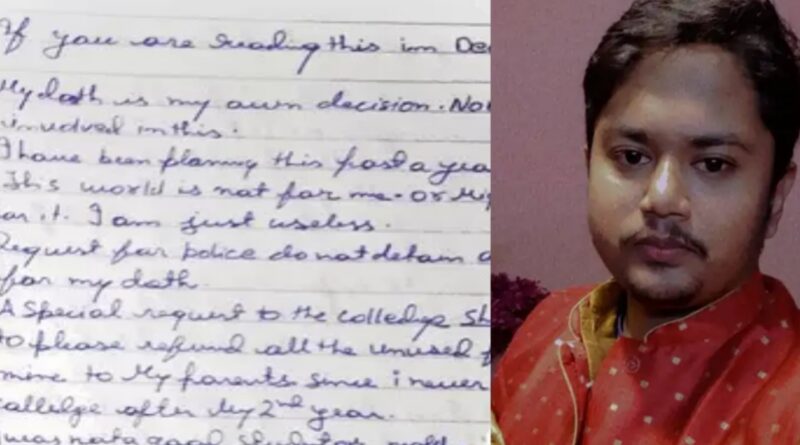 If you are reading this im De
My dath is my own decision. No
invudved in this.
I have been planing this past a yea
This world is not for me. Or
on it. I am just useless.
Request for police do not detain
for my dath
A Special request to the colledge Sh
to please refund all the unused
mine to My parents since i never
after My 2nd year.
was not a good